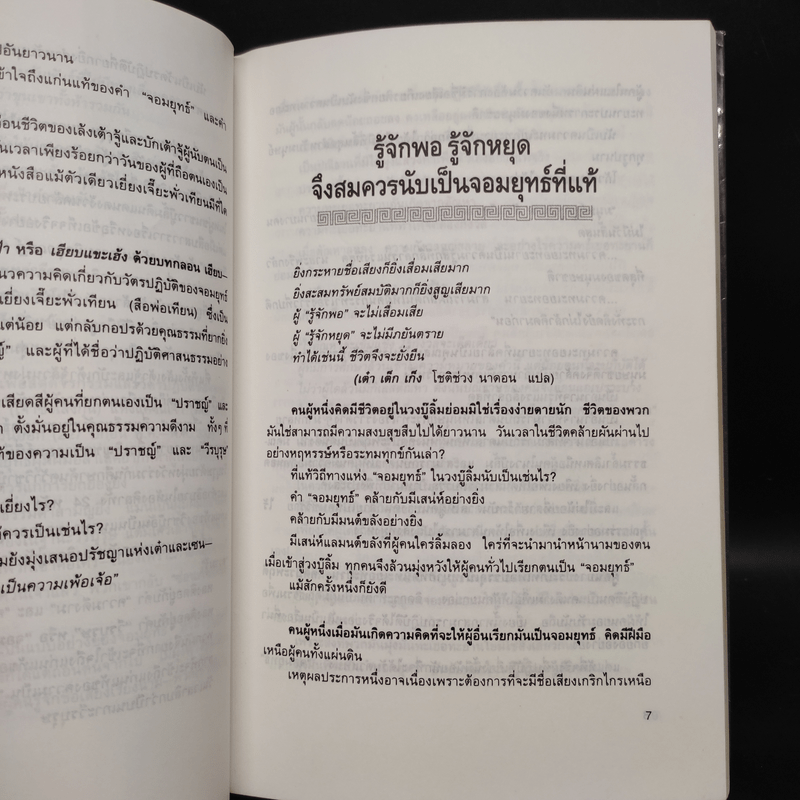 ปอันยาวนาน
ข้าใจถึงแก่นแท้ของคำ “จอมยุทธ์” และคำ
ือนชีวิตของเล้งเต้าจู้และบักเต้าจู้ผู้นับตนเป็น
นเวลาเพียงร้อยกว่าวันของผู้ที่ถือตนเองเป็น
หนังสือแม้ตัวเดียวเยี่ยงเจี๊ยะพั่วเทียนมีที่ใด
ป้า หรือ เฮียบแขะเฮ้ง ด้วยบทกลอน เฮียบ–
นวความคิดเกี่ยวกับวัตรปฏิบัติของจอมยุทธ์
เยี่ยงเจี๊ยะพั่วเทียน (สือพ่อเทียน) ซึ่งเป็น
แต่น้อย แต่กลับกอปรด้วยคุณธรรมที่ยากยิ่ง
ญ์” และผู้ที่ได้ชื่อว่าปฏิบัติศาสนธรรมอย่าง
เสียดสีผู้คนที่ยกตนเองเป็น “ปราชญ์” และ
า ตั้งมั่นอยู่ในคุณธรรมความดีงาม ทั้งๆ ที่
ท้ของความเป็น “ปราชญ์” และ “วีรบุรุษ”
เยี่ยงไร?
ควรเป็นเช่นไร?
มยังมุ่งเสนอปรัชญาแห่งเต๋าและเซน–
เป็นความเพ้อเจ้อ”
รู้จักพอ รู้จักหยุด
จึงสมควรนับเป็นจอมยุทธ์ที่แท้
ยิ่งกระหายชื่อเสียงก็ยิ่งเสื่อมเสียมาก
ยิ่งสะสมทรัพย์สมบัติมากก็ยิ่งสูญเสียมาก
ผู้ “รู้จักพอ” จะไม่เสื่อมเสีย
ผู้ “รู้จักหยุด” จะไม่มีภยันตราย
ทำได้เช่นนี้ ชีวิตจึงจะยั่งยืน
(เต๋า เต็ก เก็ง โชติช่วง นาดอน แปล)
คนผู้หนึ่งคิดมีชีวิตอยู่ในวงบู๊ลิ้มย่อมมิใช่เรื่องง่ายดายนัก ชีวิตของพวก
มันใช่สามารถมีความสงบสุขสืบไปได้ยาวนาน วันเวลาในชีวิตคล้ายผันผ่านไป
อย่างหฤหรรษ์หรือระทมทุกข์กันเล่า?
ที่แท้วิถีทางแห่ง “จอมยุทธ์” ในวงบู๊ลิ้มนับเป็นเช่นไร?
คำ “จอมยุทธ์” คล้ายกับมีเสน่ห์อย่างยิ่ง
คล้ายกับมีมนต์ขลังอย่างยิ่ง
มีเสน่ห์แลมนต์ขลังที่ผู้คนใคร่ลิ้มลอง ใคร่ที่จะนำมานำหน้านามของตน
เมื่อเข้าสู่วงบู๊ลิ้ม ทุกคนจึงล้วนมุ่งหวังให้ผู้คนทั่วไปเรียกตนเป็น “จอมยุทธ์”
แม้สักครั้งหนึ่งก็ยังดี
คนผู้หนึ่งเมื่อมันเกิดความคิดที่จะให้ผู้อื่นเรียกมันเป็นจอมยุทธ์ คิดมีฝีมือ
เหนือผู้คนทั้งแผ่นดิน
เหตุผลประการหนึ่งอาจเนื่องเพราะต้องการที่จะมีชื่อเสียงเกริกไกรเหนือ
7